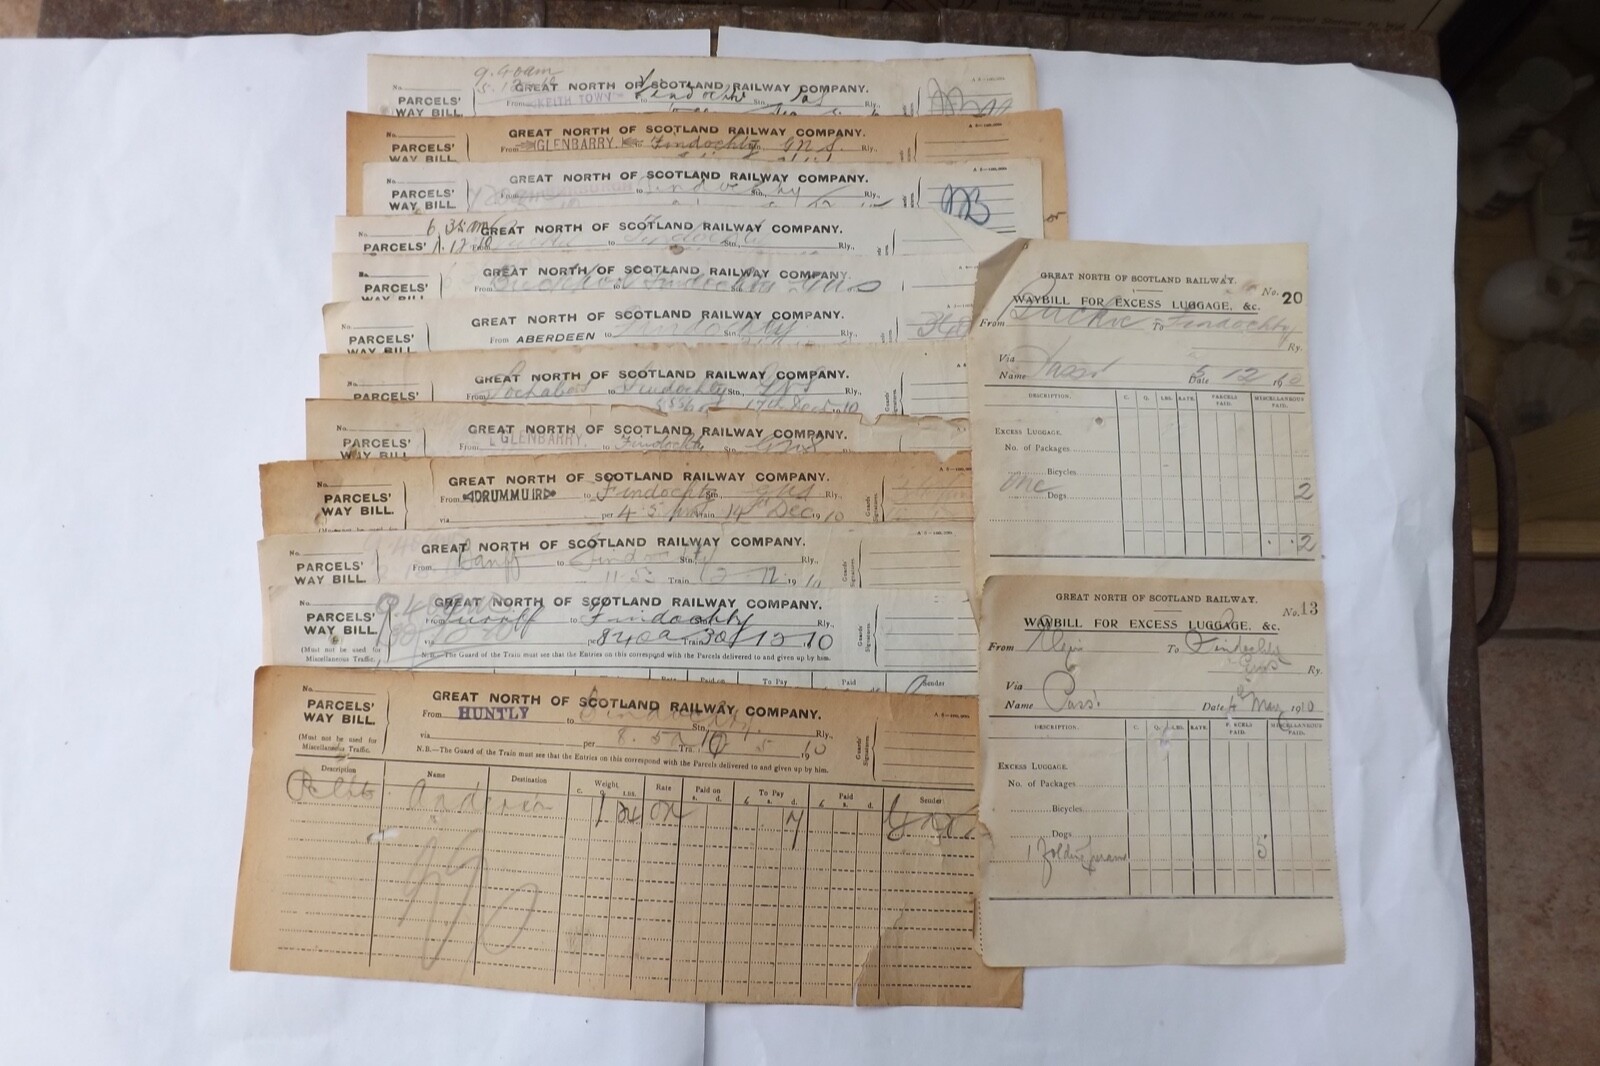 9.40am
GREAT NORTH OF SCOTLAND RAILWAY COMPANY.
No.
PARCELS' WAY BILL.
From KEITH TOWN to Findochty Stn. Rly.,
GREAT NORTH OF SCOTLAND RAILWAY COMPANY.
No.
PARCELS' WAY BILL.
From GLENBARRY. Findochty G.N.S. Rly.,
GREAT NORTH OF SCOTLAND RAILWAY COMPANY.
No.
PARCELS' WAY BILL.
From to Findochty Stn., Rly.,
6.35am
GREAT NORTH OF SCOTLAND RAILWAY COMPANY.
No.
PARCELS' 1.12.10 From to Findochty Stn., Rly.,
GREAT NORTH OF SCOTLAND RAILWAY COMPANY.
No.
PARCELS' WAY BILL.
From Buckpool Findochty Stn. GNS
GREAT NORTH OF SCOTLAND RAILWAY COMPANY.
No.
PARCELS' WAY BILL.
From ABERDEEN to Findochty Stn.
GREAT NORTH OF SCOTLAND RAILWAY COMPANY.
No.
PARCELS' WAY BILL.
From Fochabers to Findochty Stn., GNS Rly.,
17th Dec 1910
Guards' Signatures.
GREAT NORTH OF SCOTLAND RAILWAY COMPANY.
No.
PARCELS' WAY BILL.
From GLENBARRY. to Findochty Stn. GNS
GREAT NORTH OF SCOTLAND RAILWAY COMPANY.
No.
PARCELS' WAY BILL.
From DRUMMUIR to Findochty Stn., GNS Rly.,
via per 4.5 pm Train 14 Dec 1910
Guards' Signatures.
GREAT NORTH OF SCOTLAND RAILWAY COMPANY.
No.
PARCELS' WAY BILL.
From Banff to Findochty Stn. Rly.,
11.5 Train 12 12 1910
Guards' Signatures.
9.40am
GREAT NORTH OF SCOTLAND RAILWAY COMPANY.
No.
PARCELS' WAY BILL.
From Turriff to Findochty Rly.,
via per 840a Train 30/12 10
(Must not be used for Miscellaneous Traffic.
N.B.—The Guard of the Train must see that the Entries on this correspond with the Parcels delivered to and given up by him.
Guards' Signatures.
Rate Paid on To Pay Paid Sender
GREAT NORTH OF SCOTLAND RAILWAY COMPANY.
No.
PARCELS' WAY BILL.
From HUNTLY to Findochty Stn., Rly.,
via per 8.50 Train 1910
(Must not be used for Miscellaneous Traffic.
N.B.—The Guard of the Train must see that the Entries on this correspond with the Parcels delivered to and given up by him.
Guards' Signatures.
Description Name Destination Weight Rate Paid on To Pay Paid Sender
C. Q. LBS. s. d. £ s. d. £ s. d.
1 24 OR 7
GREAT NORTH OF SCOTLAND RAILWAY.
No. 20
WAYBILL FOR EXCESS LUGGAGE, &c.
From Buckie To Findochty
Ry.
Via
Name Passr Date 5 12 1910
DESCRIPTION. C. Q. LBS. RATE. PARCELS PAID. MISCELLANEOUS PAID.
EXCESS LUGGAGE.
No. of Packages
Bicycles
One Dogs 2
2
GREAT NORTH OF SCOTLAND RAILWAY.
No. 13
WAYBILL FOR EXCESS LUGGAGE, &c.
From Elgin To Findochty
GNS Ry.
Via
Name Passr Date 4 May 1910
DESCRIPTION. C. Q. LBS. RATE. PARCELS PAID. MISCELLANEOUS PAID.
EXCESS LUGGAGE.
No. of Packages
Bicycles
Dogs
1 Folding pram 5